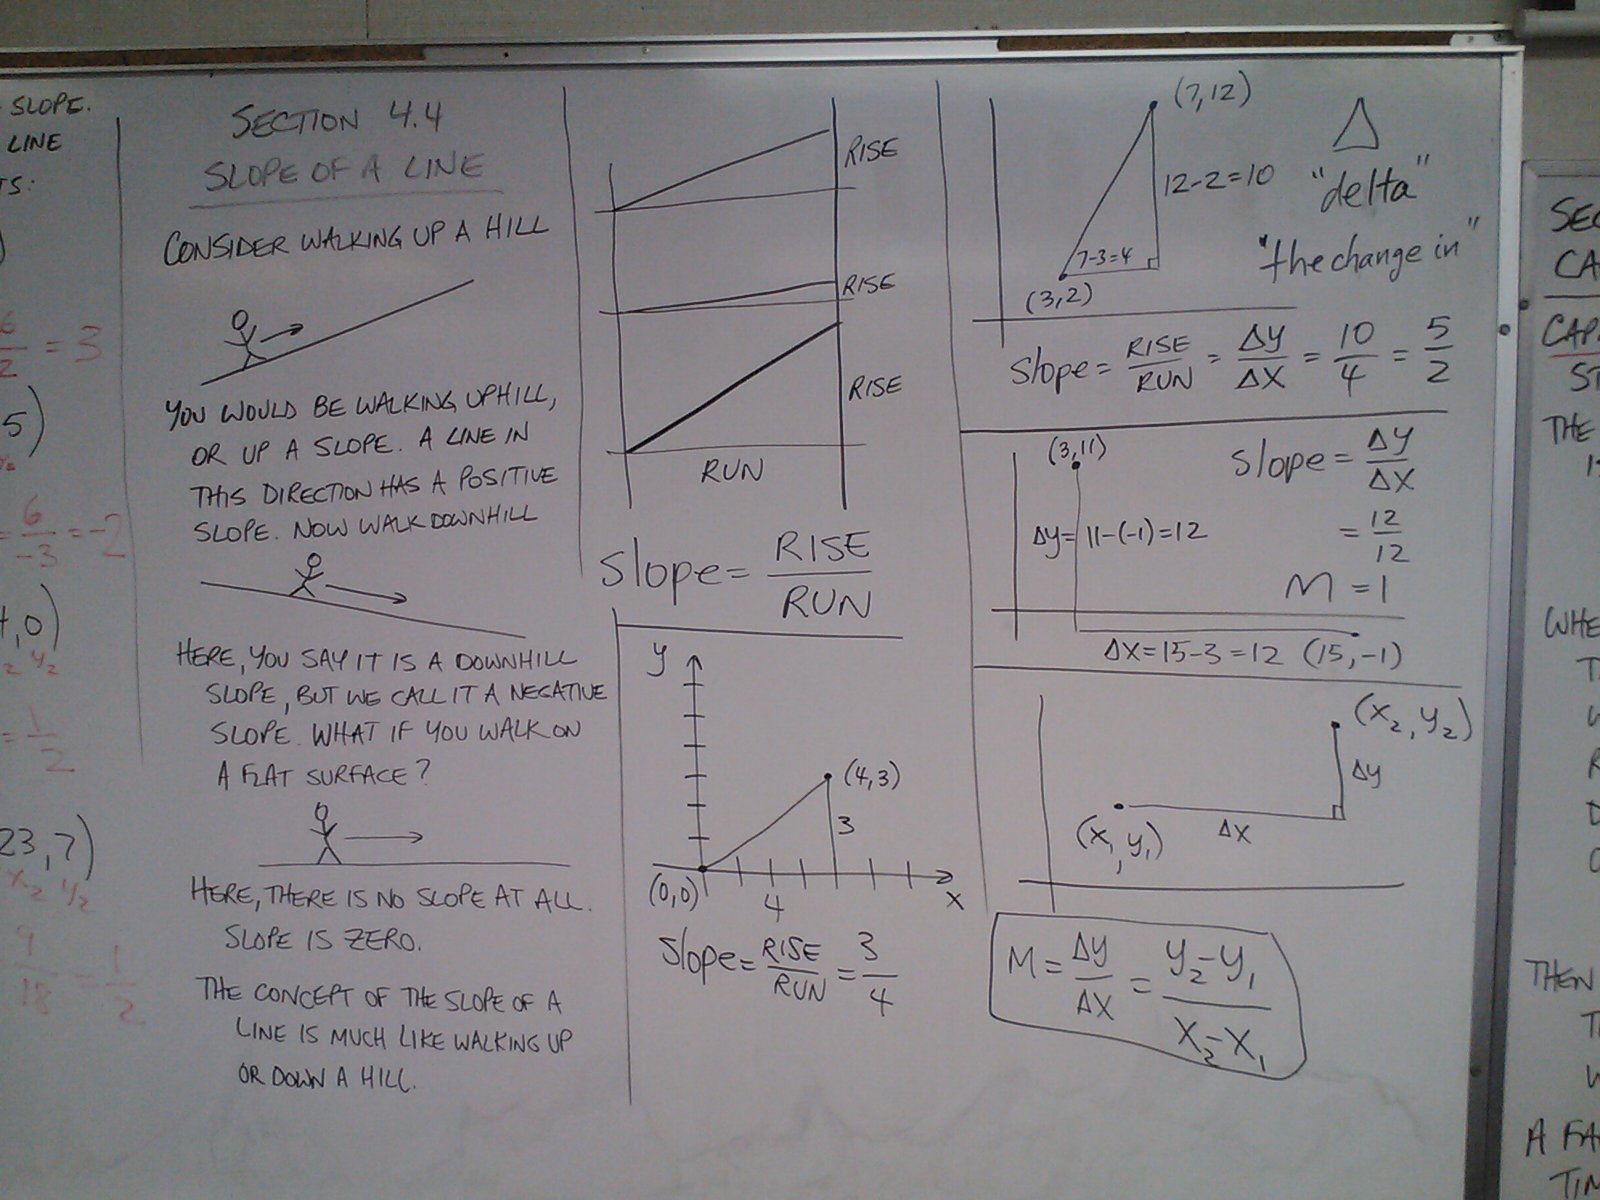 SLOPE.
LINE
TS:
= 3
5)
= 6/-3 = -2
,0)
2 y2
= 1/2
23, 7)
x2 y2
9/18 = 1/2
SECTION 4.4
SLOPE OF A LINE
CONSIDER WALKING UP A HILL
YOU WOULD BE WALKING UPHILL,
OR UP A SLOPE. A LINE IN
THIS DIRECTION HAS A POSITIVE
SLOPE. NOW WALK DOWNHILL
HERE, YOU SAY IT IS A DOWNHILL
SLOPE, BUT WE CALL IT A NEGATIVE
SLOPE. WHAT IF YOU WALK ON
A FLAT SURFACE?
HERE, THERE IS NO SLOPE AT ALL.
SLOPE IS ZERO.
THE CONCEPT OF THE SLOPE OF A
LINE IS MUCH LIKE WALKING UP
OR DOWN A HILL.
RISE
RISE
RISE
RUN
Slope = RISE/RUN
y
(4,3)
3
(0,0)
4
x
Slope = RISE/RUN = 3/4
(7,12)
12-2=10
7-3=4
(3,2)
Δ
"delta"
"the change in"
Slope = RISE/RUN = Δy/Δx = 10/4 = 5/2
(3,11)
Δy= 11-(-1)=12
Δx=15-3=12 (15,-1)
Slope = Δy/Δx
= 12/12
M = 1
(x2, y2)
Δy
Δx
(x1, y1)
M = Δy/Δx = y2-y1/x2-x1
SEC
CA
CAP
ST
THE
WHE
THEN
A FA
TIM